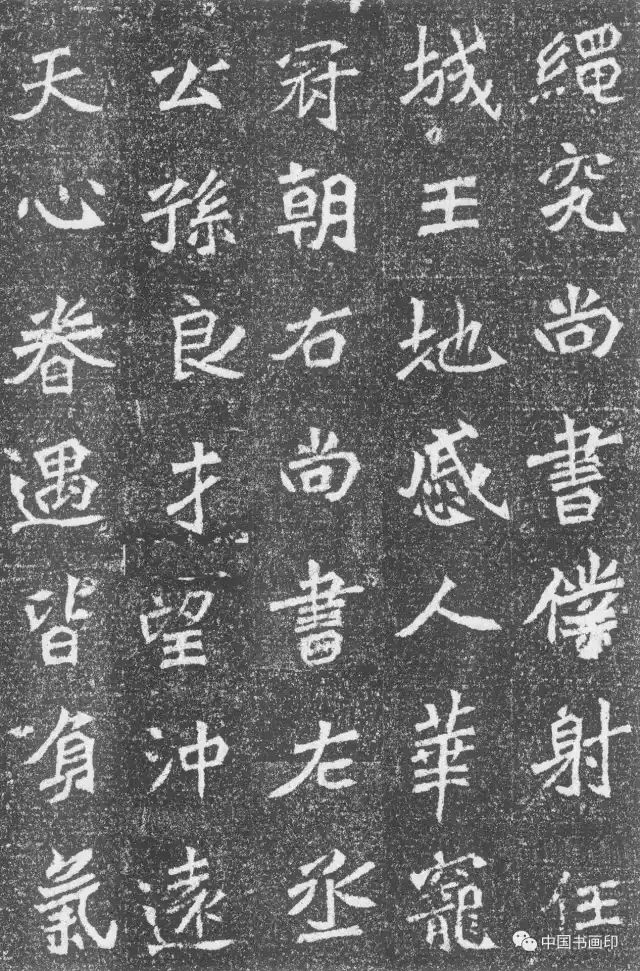 繩究尚書僕射任
城王地感人華寵
冠朝右尚書左丞
公孫良才望沖遠
天心眷遇皆負氣
中国书画印